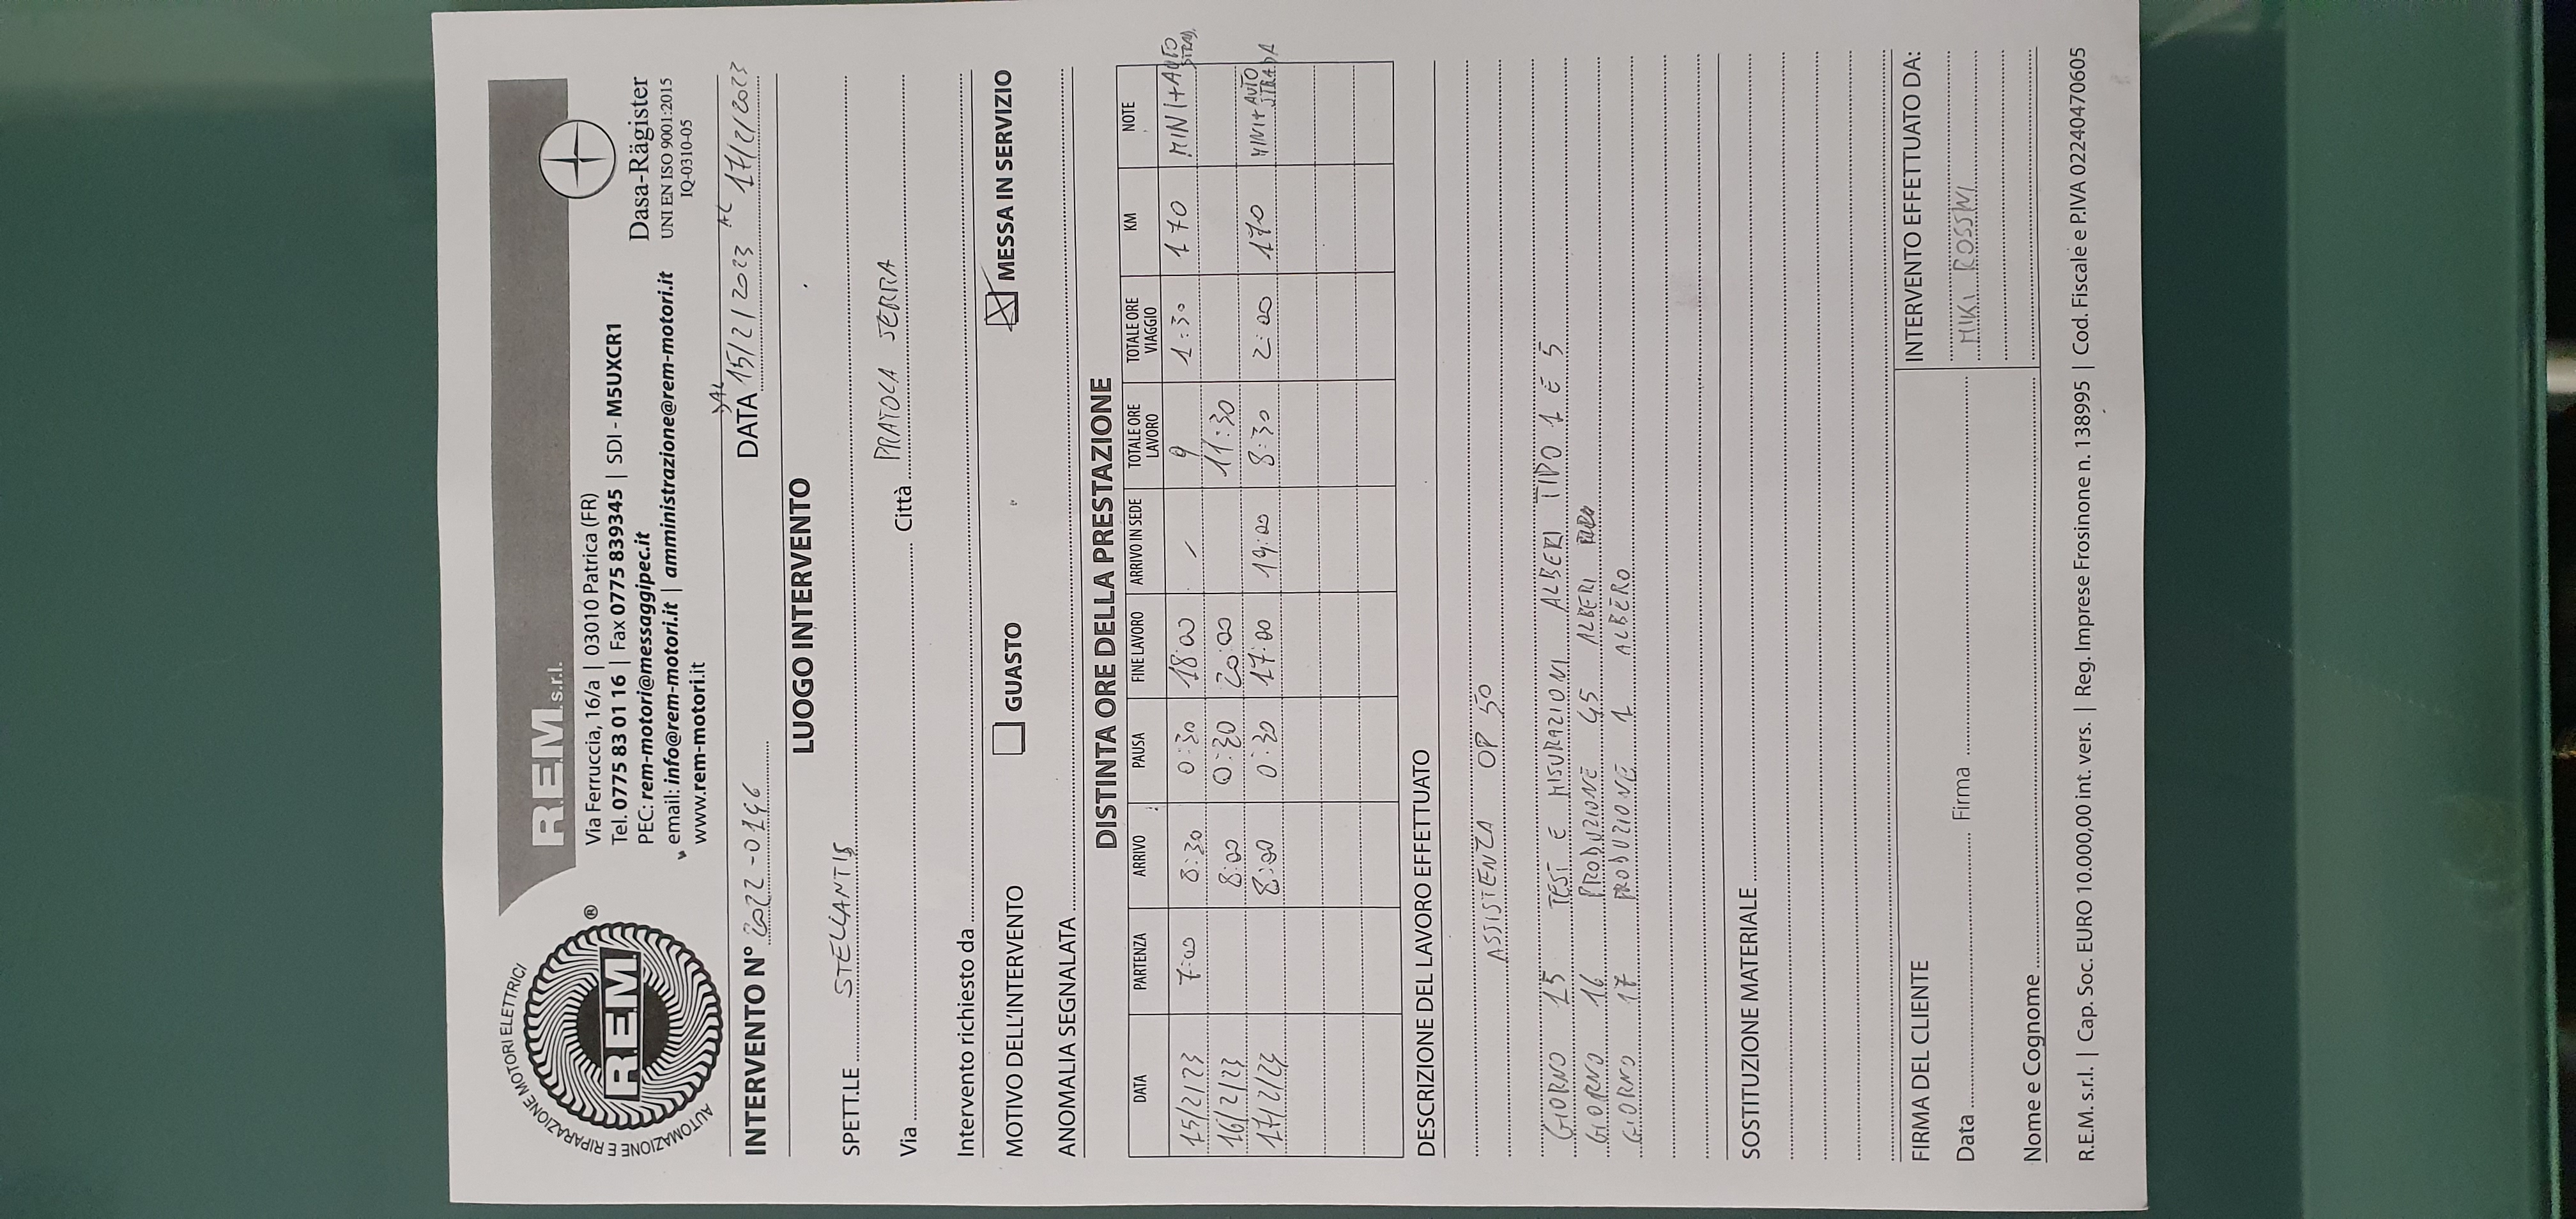 AUTOMAZIONE E RIPARAZIONE MOTORI ELETTRICI
REM ®
R.E.M. s.r.l.
Via Ferruccia, 16/a | 03010 Patrica (FR)
Tel. 0775 83 01 16 | Fax 0775 839345 | SDI - M5UXCR1
PEC: rem-motori@messaggipec.it
email: info@rem-motori.it | amministrazione@rem-motori.it
www.rem-motori.it
Dasa-Rägister
UNI EN ISO 9001:2015
IQ-0310-05
INTERVENTO N° 2022-0196 DATA DAL 15/2/2023 AL 17/2/2023
LUOGO INTERVENTO
SPETT.LE STELLANTIS
Via Città PRATOLA SERRA
Intervento richiesto da
MOTIVO DELL'INTERVENTO GUASTO MESSA IN SERVIZIO
ANOMALIA SEGNALATA
DISTINTA ORE DELLA PRESTAZIONE
DATA PARTENZA ARRIVO PAUSA FINE LAVORO ARRIVO IN SEDE TOTALE ORE LAVORO TOTALE ORE VIAGGIO KM NOTE
15/2/23 7:00 8:30 0:30 18:00 / 9 1:30 170 MINI+AUTO STRAD.
16/2/23 8:00 0:30 20:00 11:30
17/2/23 8:00 0:30 17:00 19:00 8:30 2:00 170 MINI+AUTO STRADA
DESCRIZIONE DEL LAVORO EFFETTUATO
ASSISTENZA OP 50
GIORNO 15 TEST E MISURAZIONI ALBERI TIPO 1 E 5
GIORNO 16 PRODUZIONE 45 ALBERI
GIORNO 17 PRODUZIONE 1 ALBERO
SOSTITUZIONE MATERIALE
FIRMA DEL CLIENTE INTERVENTO EFFETTUATO DA:
Data Firma MIKI ROSSINI
Nome e Cognome
R.E.M. s.r.l. | Cap. Soc. EURO 10.000,00 int. vers. | Reg. Imprese Frosinone n. 138995 | Cod. Fiscale e P.IVA 02240470605